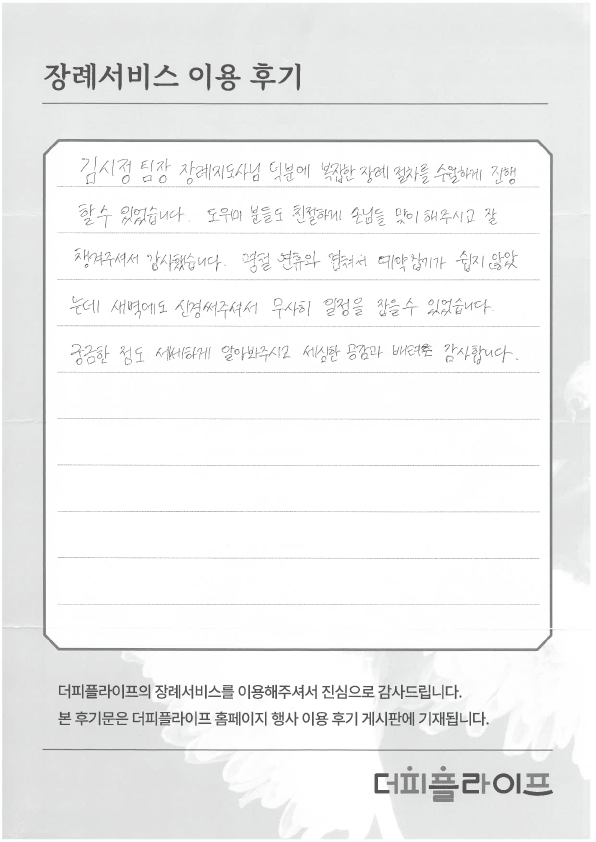 장례서비스 이용 후기
김시정 팀장 장례지도사님 덕분에 복잡한 장례 절차를 수월하게 진행
할 수 있었습니다. 도우미 분들도 친절하게 손님들 맞이해주시고 잘
챙겨주셔서 감사했습니다. 명절 연휴와 겹쳐서 예약잡기가 쉽지 않았
는데 새벽에도 신경써주셔서 무사히 일정을 잡을 수 있었습니다.
궁금한 점도 세세하게 알아봐주시고 세심한 공감과 배려로 감사합니다.
더피플라이프의 장례서비스를 이용해주셔서 진심으로 감사드립니다.
본 후기문은 더피플라이프 홈페이지 행사 이용 후기 게시판에 기재됩니다.
더피플라이프